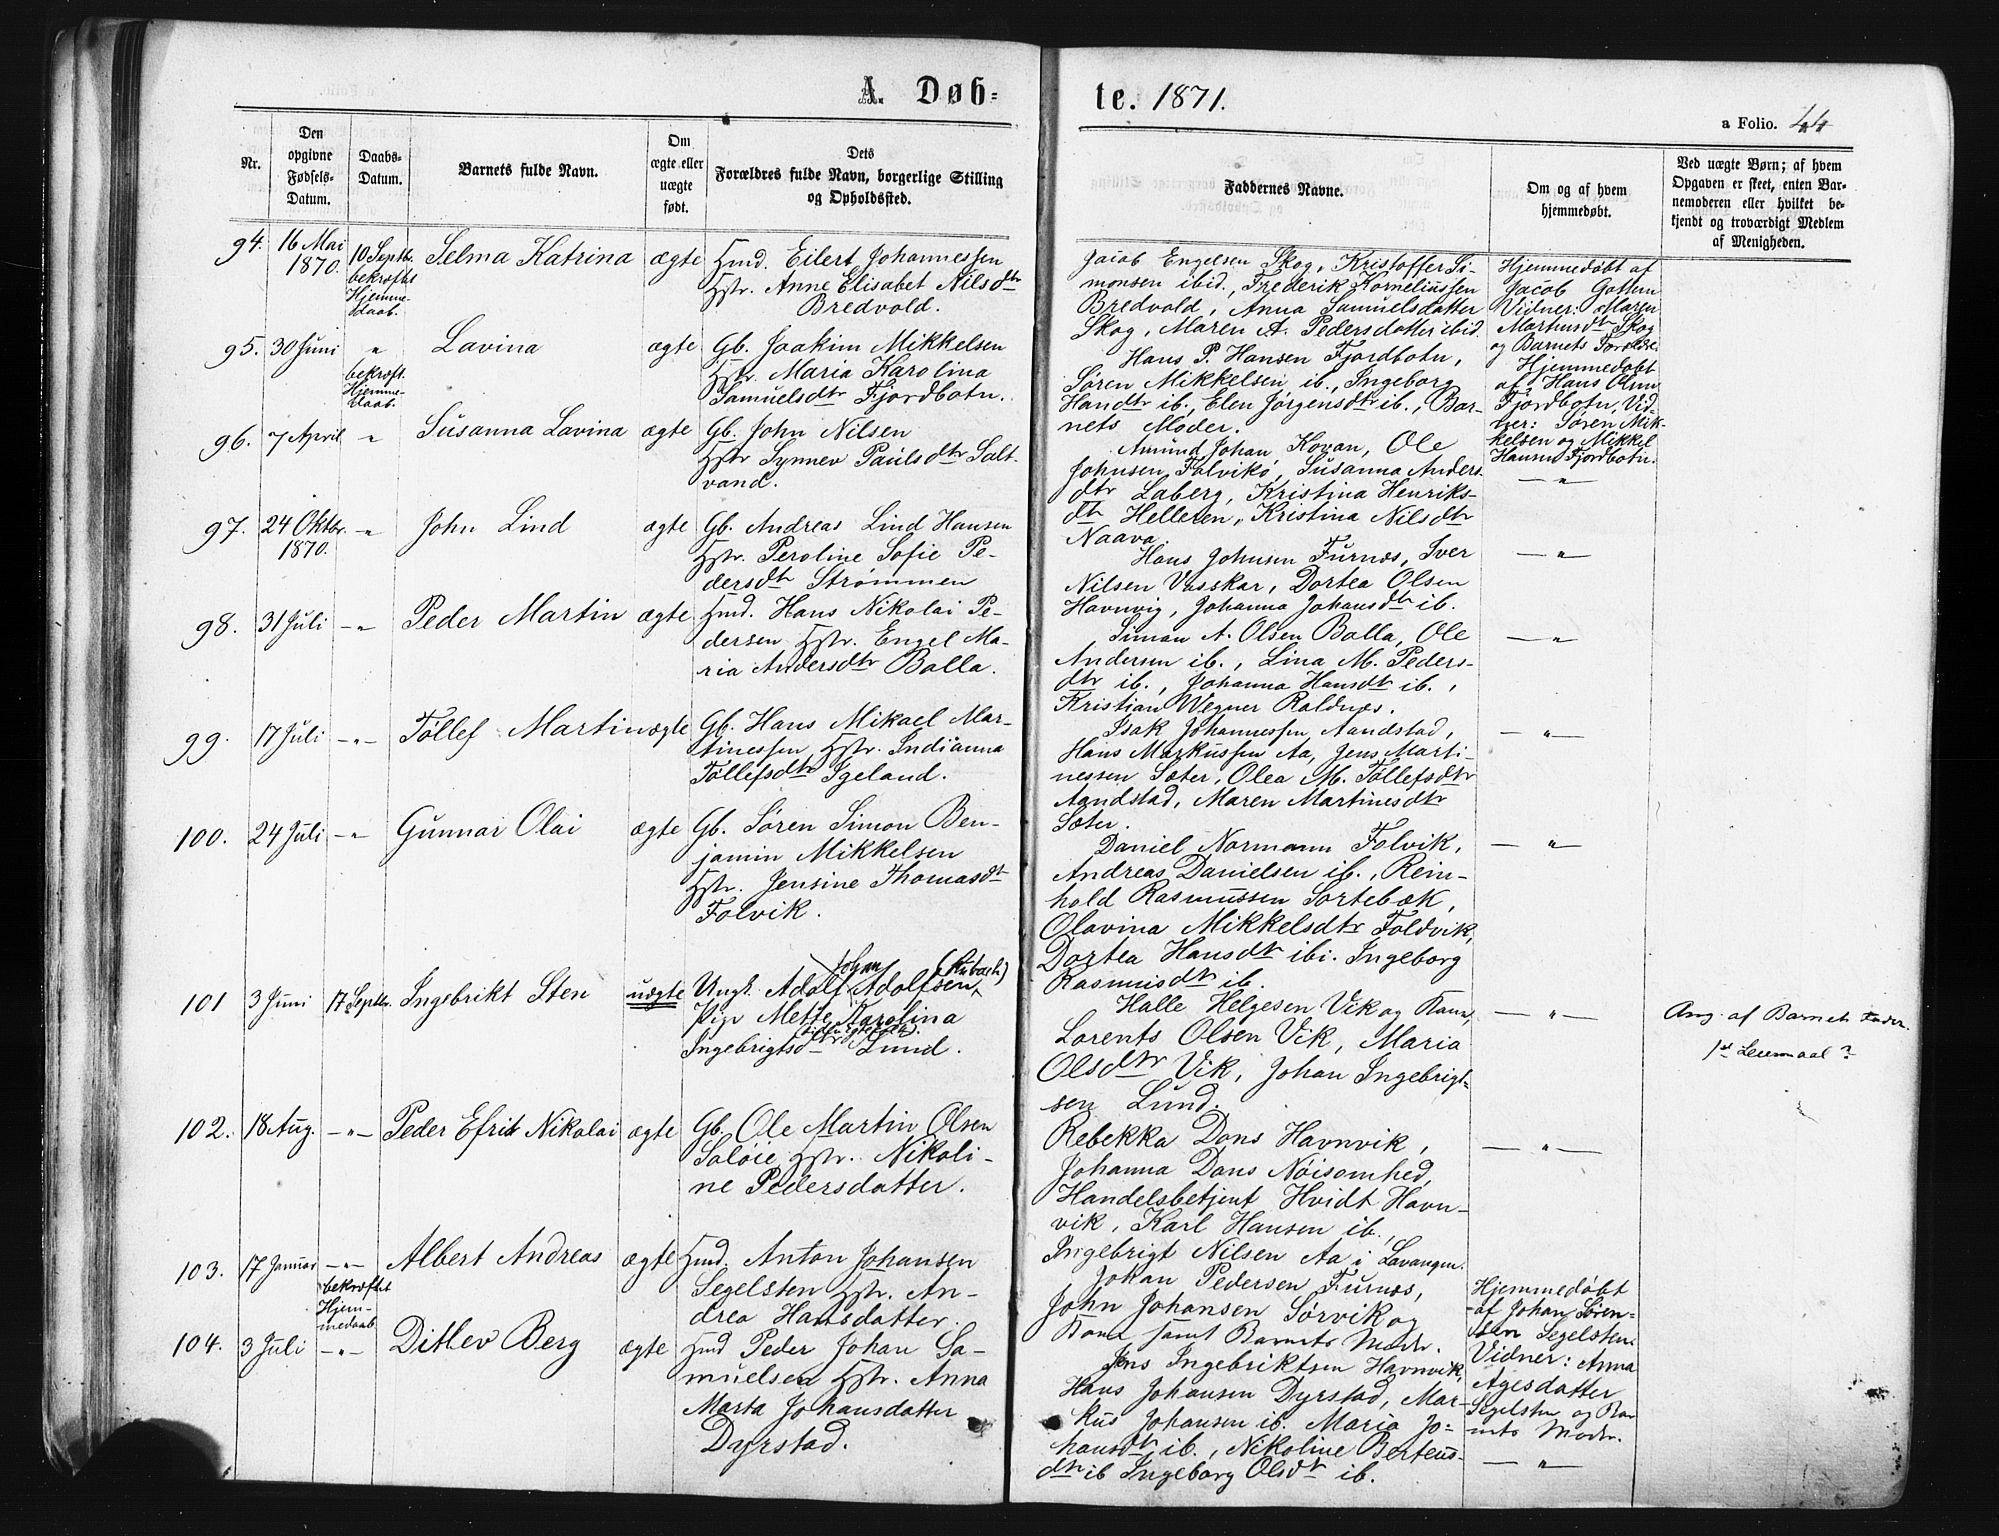 A. Døb-
te. 1871.
a Folio. 44
Nr.
Den opgivne Fødsels-Datum.
Daabs-Datum.
Barnets fulde Navn.
Om ægte eller uægte født.
Dets Forældres fulde Navn, borgerlige Stilling og Opholdssted.
Faddernes Navne.
Om og af hvem hjemmedøbt.
Ved uægte Børn; af hvem Opgaven er skeet, enten Barnemoderen eller hvilket bekjendt og troværdigt Medlem af Menigheden.
94. 16 Mai 1870. 10 Septbr. bekræftet Hjemmedaab. Selma Katrina ægte
Hmd. Eilert Johannessen
Hstr. Anne Elisabet Nilsdtr
Bredvold.
Jacob Engelsen Skog, Kristoffer Si-
monsen ibid., Frederik Korneliussen
Bredvold, Anna Samuelsdatter
Skog, Maren A. Pedersdatter ibid.
Hjemmedøbt af
Jacob
Vidner: Maren
Skog
og Barnets Forældre.
95. 30 Juni " bekræft. Hjemmedaab. Lavina ægte
Gb. Joakim Mikkelsen
Hstr. Maria Karolina
Samuelsdtr Fjordbotn.
Hans P. Hansen Fjordbotn,
Søren Mikkelsen ib., Ingeborg
Handtr ib., Elen Jørgensdtr ib., Bar-
nets Moder.
Hjemmedøbt
af Hans Olsen
Fjordbotn, Vid-
ner: Søren Mik-
kelsen og Mikkel
Hansen Fjordbotn.
96. 7 April " Susanna Lavina ægte
Gb. John Nilsen
Hstr Synnev Paulsdtr Salt-
vand.
Amund Johan Kovan, Ole
Johnsen Falvikø, Susanna Anders-
dtr Laberg, Kristina Henriks-
dtr Helleren, Kristina Nilsdtr
Naava.
— " —
97. 24 Oktbr. 1870. — " John Lind ægte
Gb. Andreas Lind Hansen
Hstr. Peroline Sofie Pe-
dersdtr Strømmen
Hans Johnsen Furnæs, Iver
Nilsen Vasskar, Dortea Olsen
Havnvig, Johanna Johansdtr ib.
— " —
98. 31 Juli — " Peder Martin ægte
Hmd. Hans Nikolai Pe-
dersen Hstr. Engel Ma-
ria Andersdtr Bolla.
Simon A. Olsen Bolla, Ole
Andersen ib., Lina M. Peders-
dtr ib., Johanna Hansdtr ib.,
Kristian Wegner Roldnæs.
— " —
99. 17 Juli — " — Tøllef Martin ægte
Gb. Hans Mikael Mar-
tinessen, Hstr. Indianna
Tøllefsdtr Igeland.
Isak Johannessen Aandstad,
Hans Markussen Aa, Jens Marti-
nessen Sæter, Olea M. Tøllefsdtr
Aandstad, Maren Martinesdtr
Sæter.
— " —
100. 24 Juli — " Gunnar Olai ægte
Gb. Søren Simon Ben-
jamin Mikkelsen
Hstr. Jensine Thomasdtr
Folvik.
Daniel Normann Folvik,
Andreas Danielsen ib., Rein-
hold Rasmussen Sortebæk,
Olavina Mikkelsdtr Foldvik,
Dortea Hansdtr ibi. Ingeborg
Rasmusdtr ib.
— " —
101 3 Juni 17 Septbr. Ingebrikt Sten uægte
Johan (Rubach)
Ungk. Adolf Adolfsen,
Pige Mette Karolina
Ingebrigtsdtr Lund.
Halle Helgesen Vik og Kone,
Lorents Olsen Vik, Maria
Olsdtr Vik, Johan Ingebrigt-
sen Lund.
— " —
Ang. af Barnets Fader.
1st Leiermaal?
102. 18 Aug. — " — Peder Efrit Nikolai ægte
Gb. Ole Martin Olsen
Soløie Hstr. Nikoli-
ne Pedersdatter.
Rebekka Dons Havnvik,
Johanna Dons Nøisomhed,
Handelsbetjent Hvidt Havn-
vik, Karl Hansen ib.,
Ingebrigt Nilsen Aa i Lavangen.
— " —
103. 17 Januar — " — bekræftet Hjemmedaab Albert Andreas ægte
Hmd. Anton Johansen
Segelsten Hstr. An-
drea Hansdatter.
Johan Pedersen Furnæs,
John Johansen Sørvik og
Kone samt Barnets Moder.
Hjemmedøbt
af Johan Søren-
sen Segelsten.
Vidner: Anna
Agesdatter
Segelsten og Bar
nets Moder.
104. 3 Juli — " — Ditlev Berg ægte
Hmd Peder Johan Sa-
muelsen Hstr. Anna
Marta Johansdatter
Dyrstad.
Jens Ingebriktsen Havnvik,
Hans Johansen Dyrstad, Mar-
kus Johansen ib. Maria Jo-
hansdtr ib., Nikoline Berteus-
dtr ib Ingeborg Olsdtr ib.
— " —